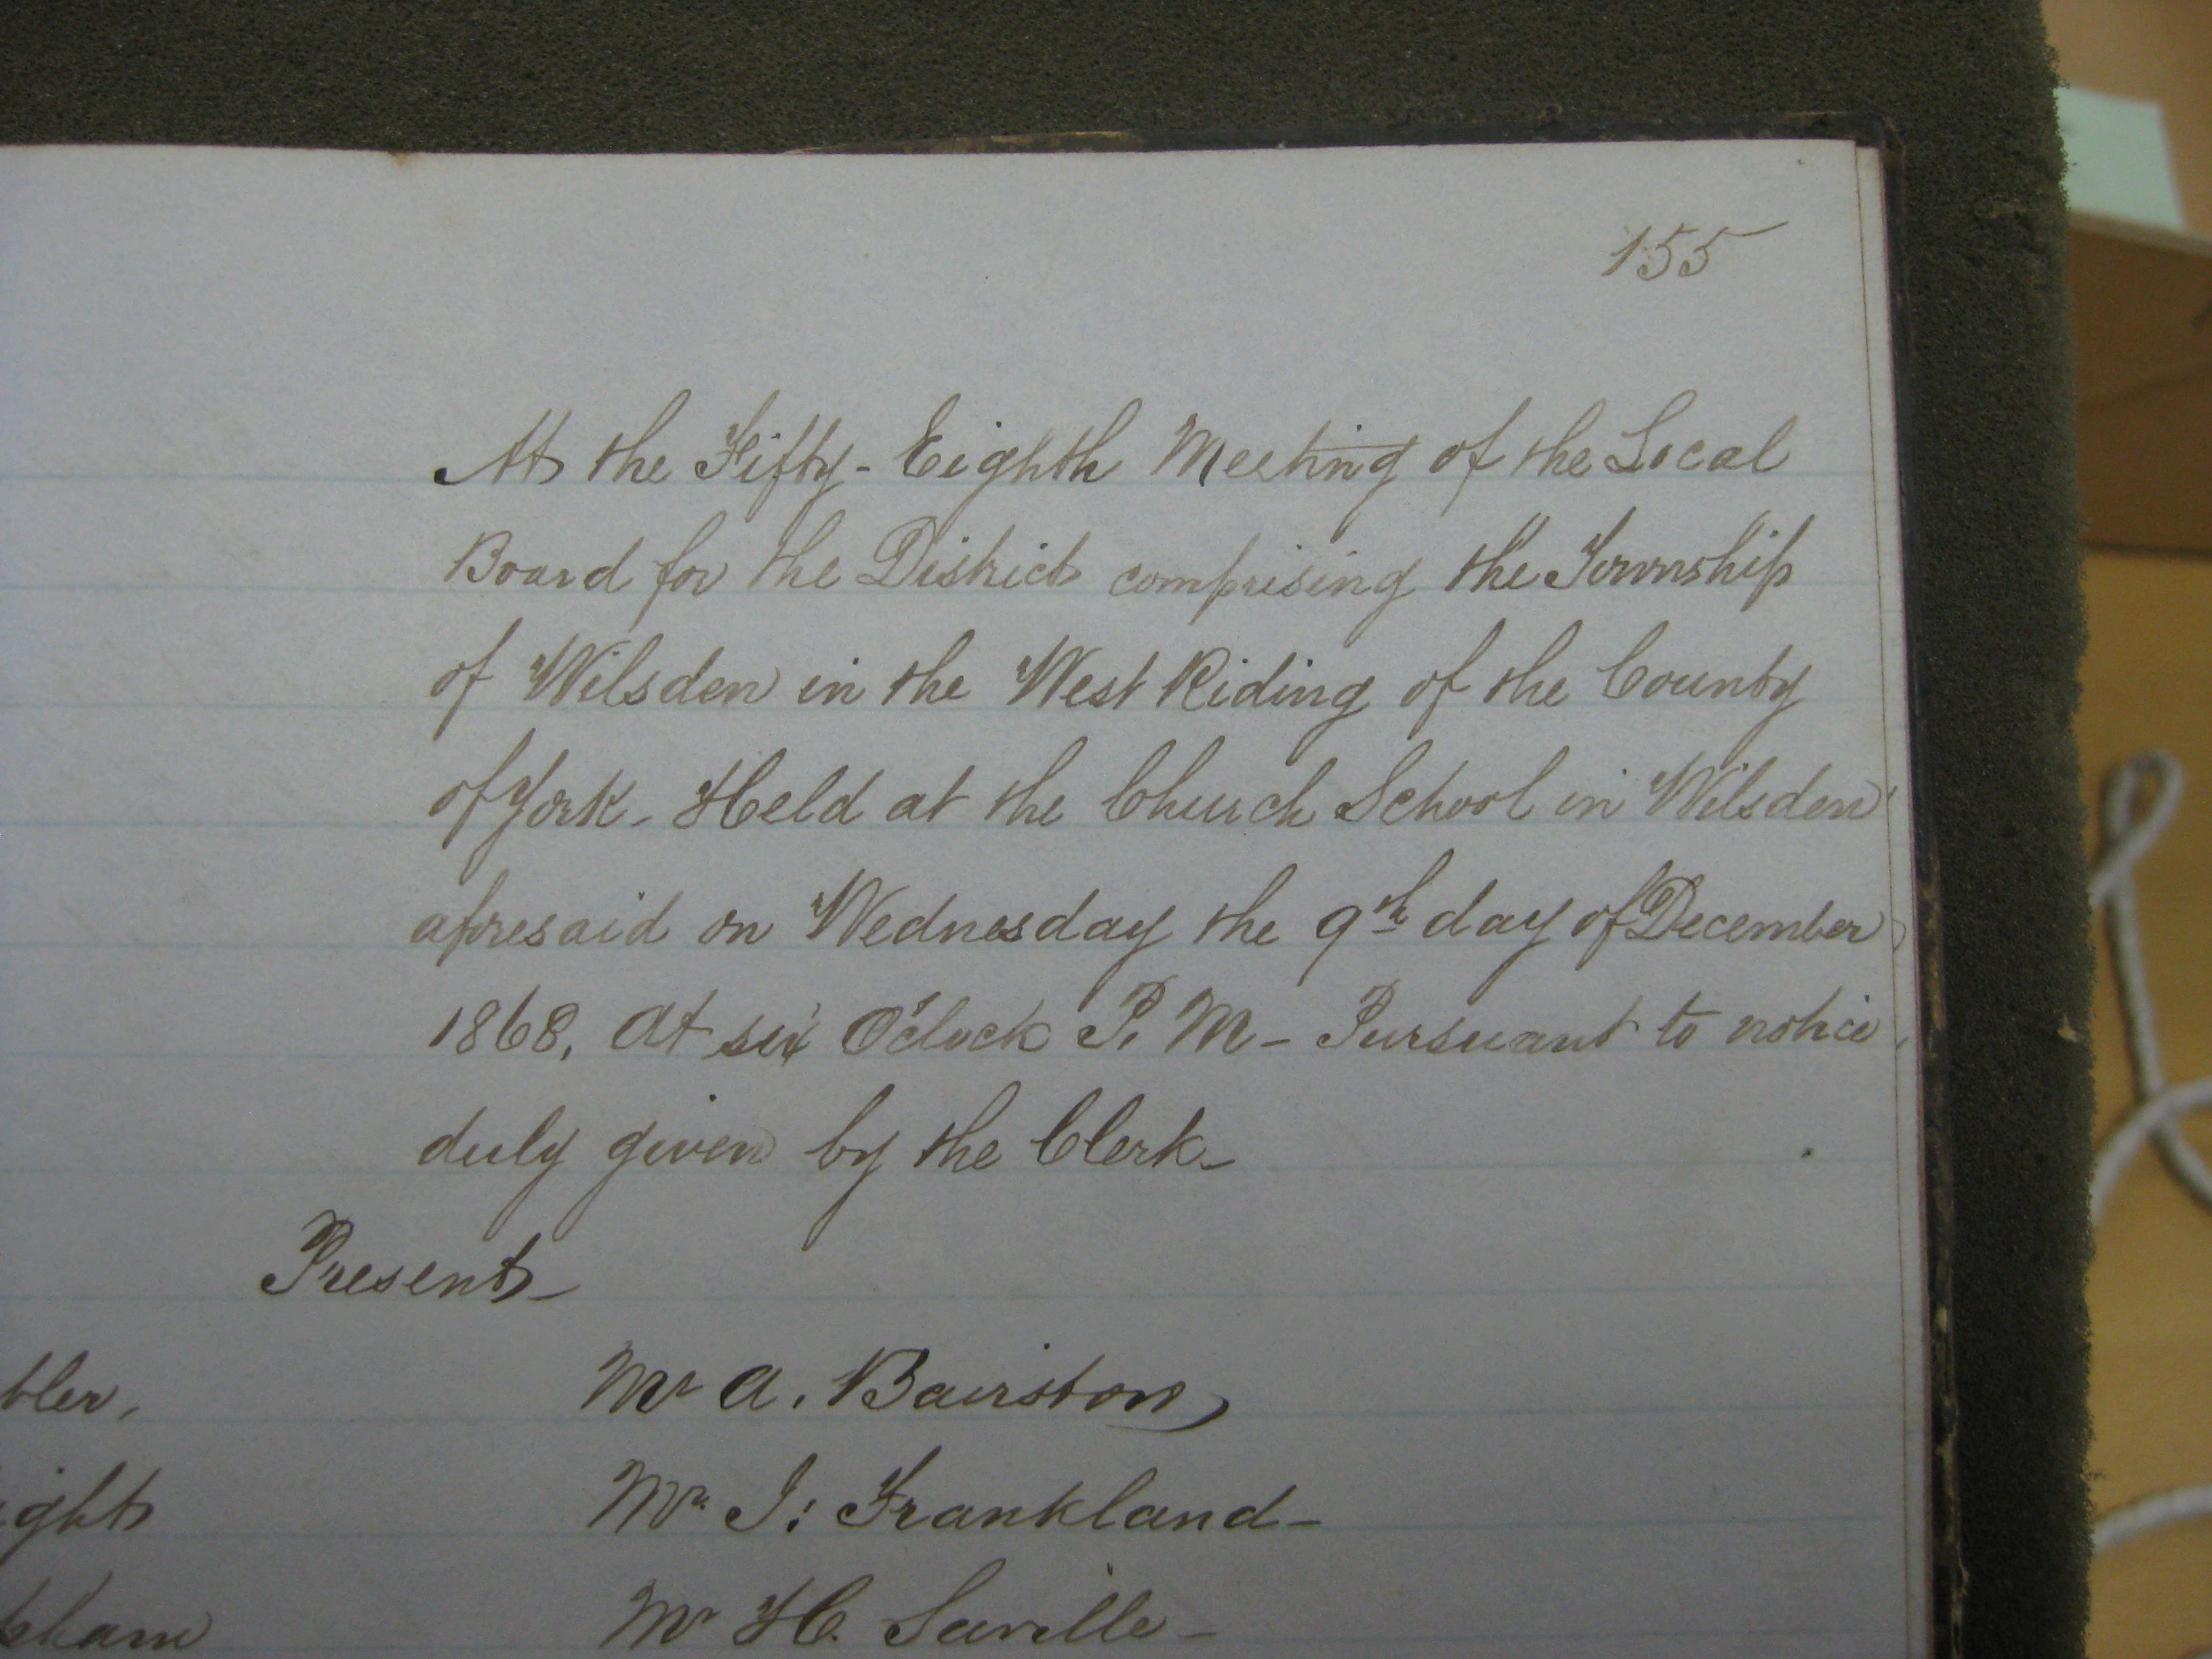 155
At the Fifty-Eighth Meeting of the Local
Board for the District comprising the Township
of Wilsden in the West Riding of the County
of York - Held at the Church School in Wilsden
aforesaid on Wednesday the 9th day of December
1868, At six O'Clock P. M - Pursuant to notice
duly given by the Clerk -
Present -
bler, Mr A. Bairstow,
ight Mr. J: Frankland -
kham Mr H. Saville -